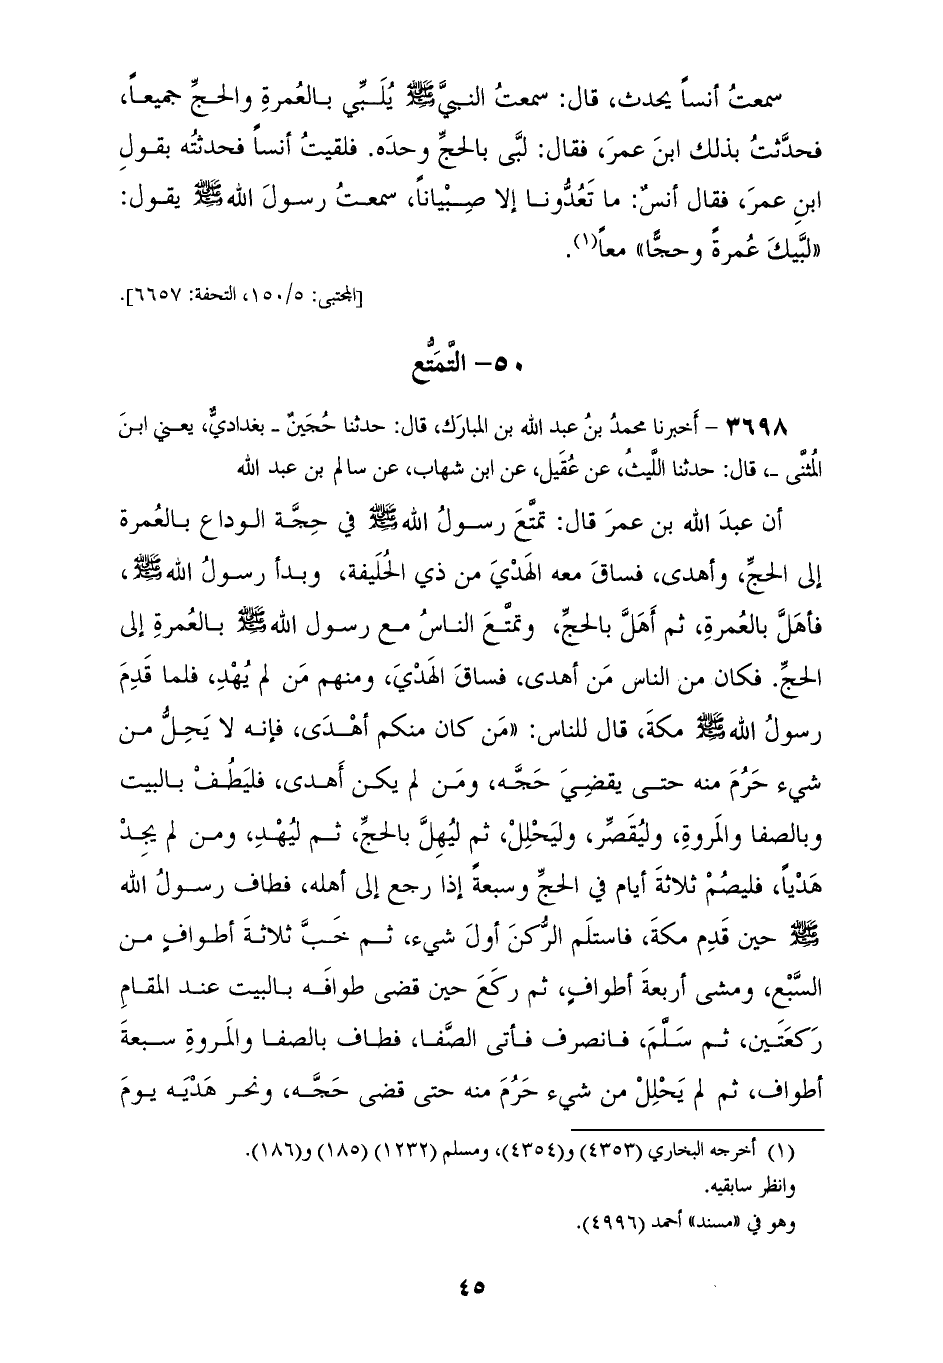 سمعتُ أنساً يحدث، قال: سمعتُ النبيَّ ﷺ يُلَبِّي بالعُمرةِ والحجِّ جميعاً،
فحدَّثتُ بذلك ابنَ عمرَ، فقال: لبَّى بالحجِّ وحدَه. فلقيتُ أنساً فحدثتُه بقولِ
ابنِ عمرَ، فقال أنسٌ: ما تَعُدُّونا إلا صِبْياناً، سمعتُ رسولَ الله ﷺ يقول:
«لبَّيكَ عُمرةً وحجًّا» معاً(١).
[المجتبى: ١٥٠/٥، التحفة: ٦٦٥٧].
٥٠- التَّمَتُّع
٣٦٩٨ - أَخبرنا محمدُ بنُ عبد الله بن المبارَك، قال: حدثنا حُجَينٌ ـ بغداديٌّ، يعني ابنَ
المُثنَّى ـ، قال: حدثنا اللَّيثُ، عن عُقَيل، عن ابن شهاب، عن سالم بن عبد الله
أن عبدَ الله بن عمرَ قال: تمتَّعَ رسولُ الله ﷺ في حِجَّة الوداع بالعُمرة
إلى الحجِّ، وأهدى، فساقَ معه الهَدْيَ من ذي الحُلَيفة، وبدأ رسولُ الله ﷺ،
فأهَلَّ بالعُمرةِ، ثم أَهَلَّ بالحجِّ، وتمتَّعَ الناسُ مع رسول الله ﷺ بالعُمرةِ إلى
الحجِّ. فكان من الناس مَن أهدى، فساقَ الهَدْيَ، ومنهم مَن لم يُهْدِ، فلما قَدِمَ
رسولُ الله ﷺ مكةَ، قال للناس: «مَن كان منكم أهْدَى، فإنه لا يَحِلُّ من
شيء حَرُمَ منه حتى يقضيَ حَجَّه، ومَن لم يكن أَهدى، فليَطُفْ بالبيت
وبالصفا والمَروةِ، وليُقَصِّر، وليَحْلِلْ، ثم ليُهِلَّ بالحجِّ، ثم ليُهْدِ، ومن لم يجِدْ
هَدْياً، فليصُمْ ثلاثةَ أيام في الحجِّ وسبعةً إذا رجع إلى أهله، فطاف رسولُ الله
ﷺ حين قَدِم مكةَ، فاستلَم الرُّكنَ أولَ شيء، ثم خَبَّ ثلاثةَ أطوافٍ من
السَّبْع، ومشى أربعةَ أطوافٍ، ثم ركَعَ حين قضى طوافَه بالبيت عند المقامِ
رَكعَتَين، ثم سَلَّمَ، فانصرف فأتى الصَّفا، فطاف بالصفا والمَروةِ سبعةَ
أطواف، ثم لم يَحْلِلْ من شيء حَرُمَ منه حتى قضى حَجَّه، ونحر هَدْيَه يومَ
(١) أخرجه البخاري (٤٣٥٣) و(٤٣٥٤)، ومسلم (١٢٣٢) (١٨٥) و(١٨٦).
وانظر سابقيه.
وهو في «مسند» أحمد (٤٩٩٦).
٤٥